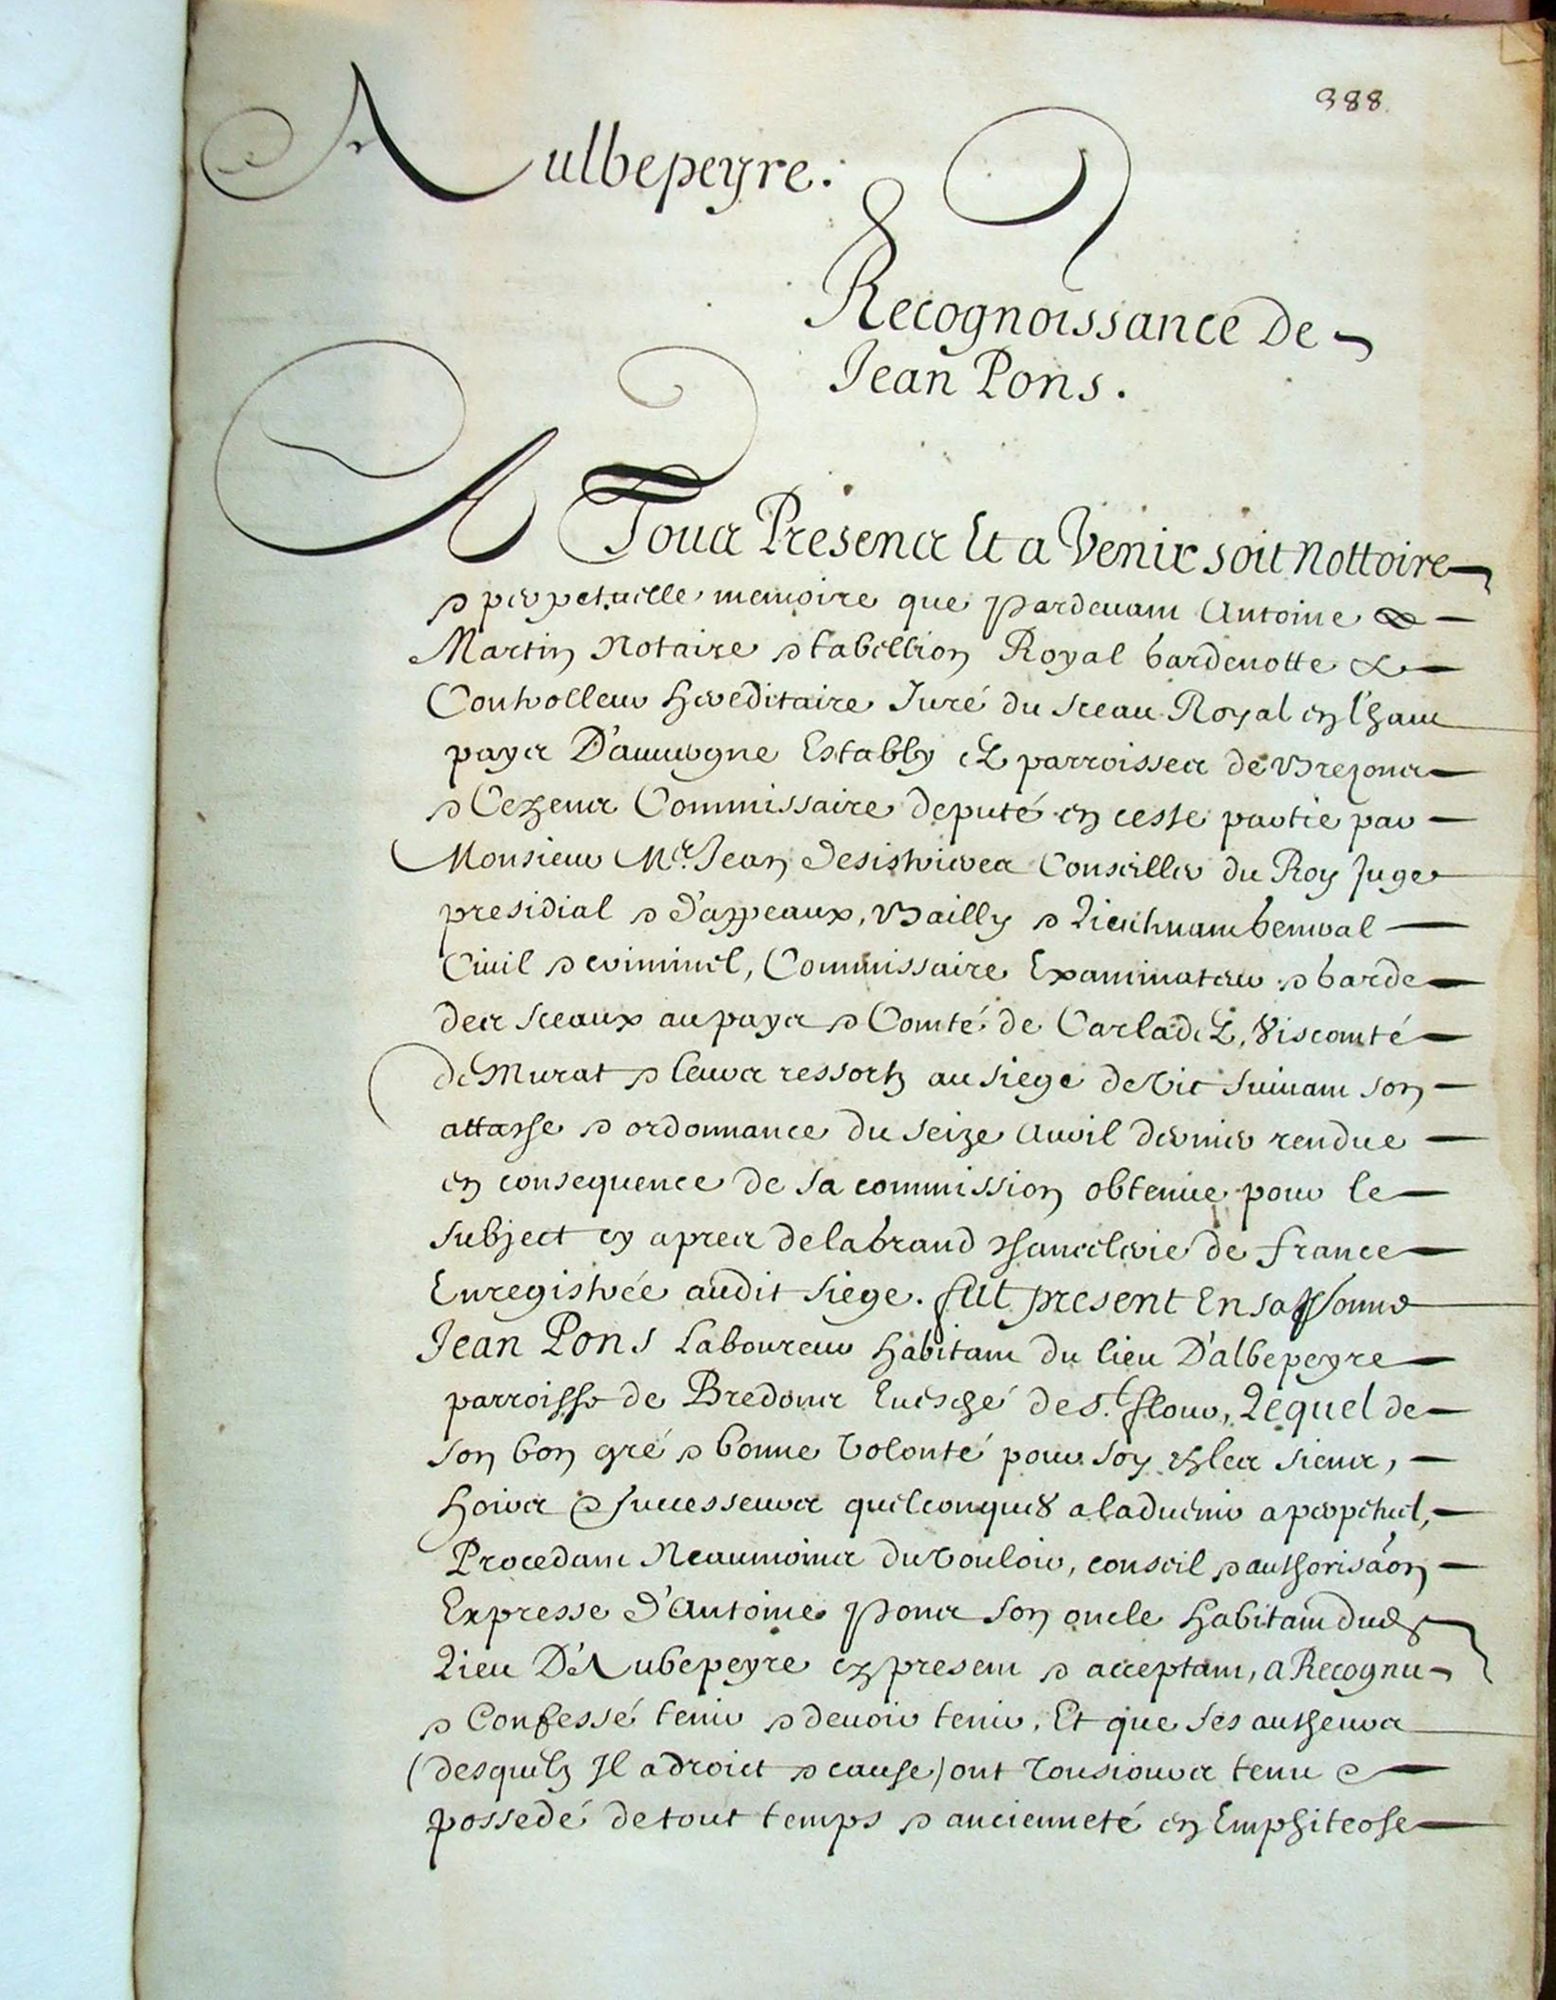 388
Aulbepeyre.
Recognoissance De
Jean Pons.
A Tous Presens Et a Venir soit Nottoire
& perpetuelle memoire que pardevant Antoine
Martin Notaire & tabellion Royal Gardenotte &
Controlleur Hereditaire Juré du sceau Royal en l'haut
pays D'auvergne Estably ez parroisses de Brezons
& Cezens Commissaire deputé en ceste partie par
Monsieur Mr. Jean Desistrieres Conseiller du Roy Juge
presidial & d'appeaux, Bailly & Lieutenant General
Civil & criminel, Commissaire Examinateur & Garde
des sceaux au pays & Comté de Carladez, Viscomté
de Murat & leurs ressortz au siege de Vic suivant son
attache & ordonnance du seize Avril dernier rendue
en consequence de sa commission obtenue pour le
subject cy apres de la Grand Chancelerie de france
Enregistrée audit siege. fut present En sa personne
Jean Pons Laboureur habitant du lieu D'albepeyre
parroisse de Bredons Evesché de St. flour, Lequel de
son bon gré & bonne volonté pour soy & les siens,
Hoirs & successeurs quelconques a l'advenir a perpetuel,
Procedant Neaumoins du vouloir, conseil & authorisaon
Expresse d'Antoine Pons son oncle habitant dud.
Lieu D'Aubepeyre cy present & acceptant, a Recognu
& Confessé tenir & devoir tenir, Et que ses autheurs
(desquelz Il a droict & cause) ont tousiours tenu &
possedé de tout temps & ancienneté en Emphiteose